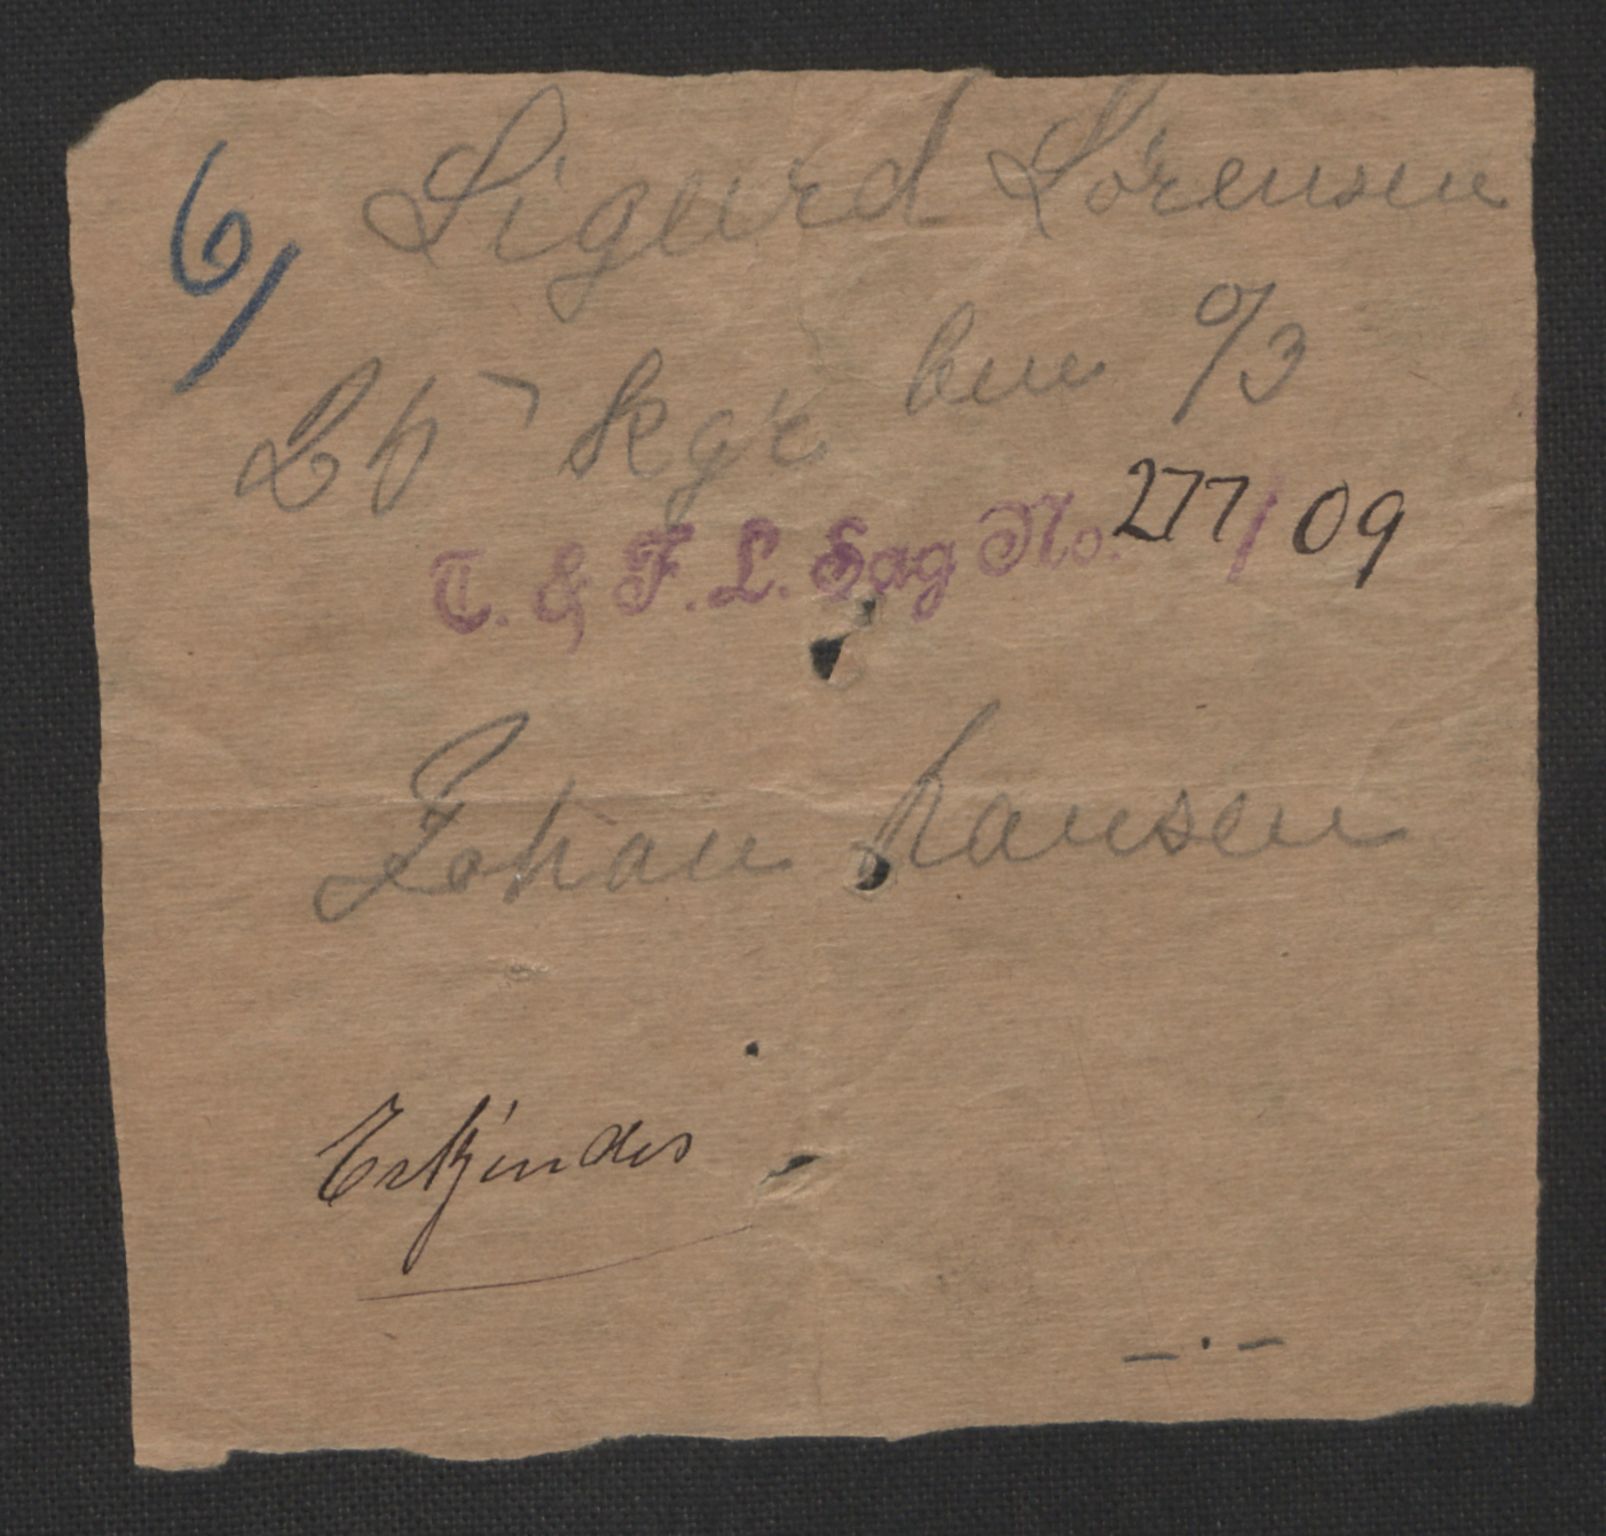 6/ Sigurd Sørensen
%3
T. & F. L. Sag No. 277/09
Johan hansen
Erkjendes